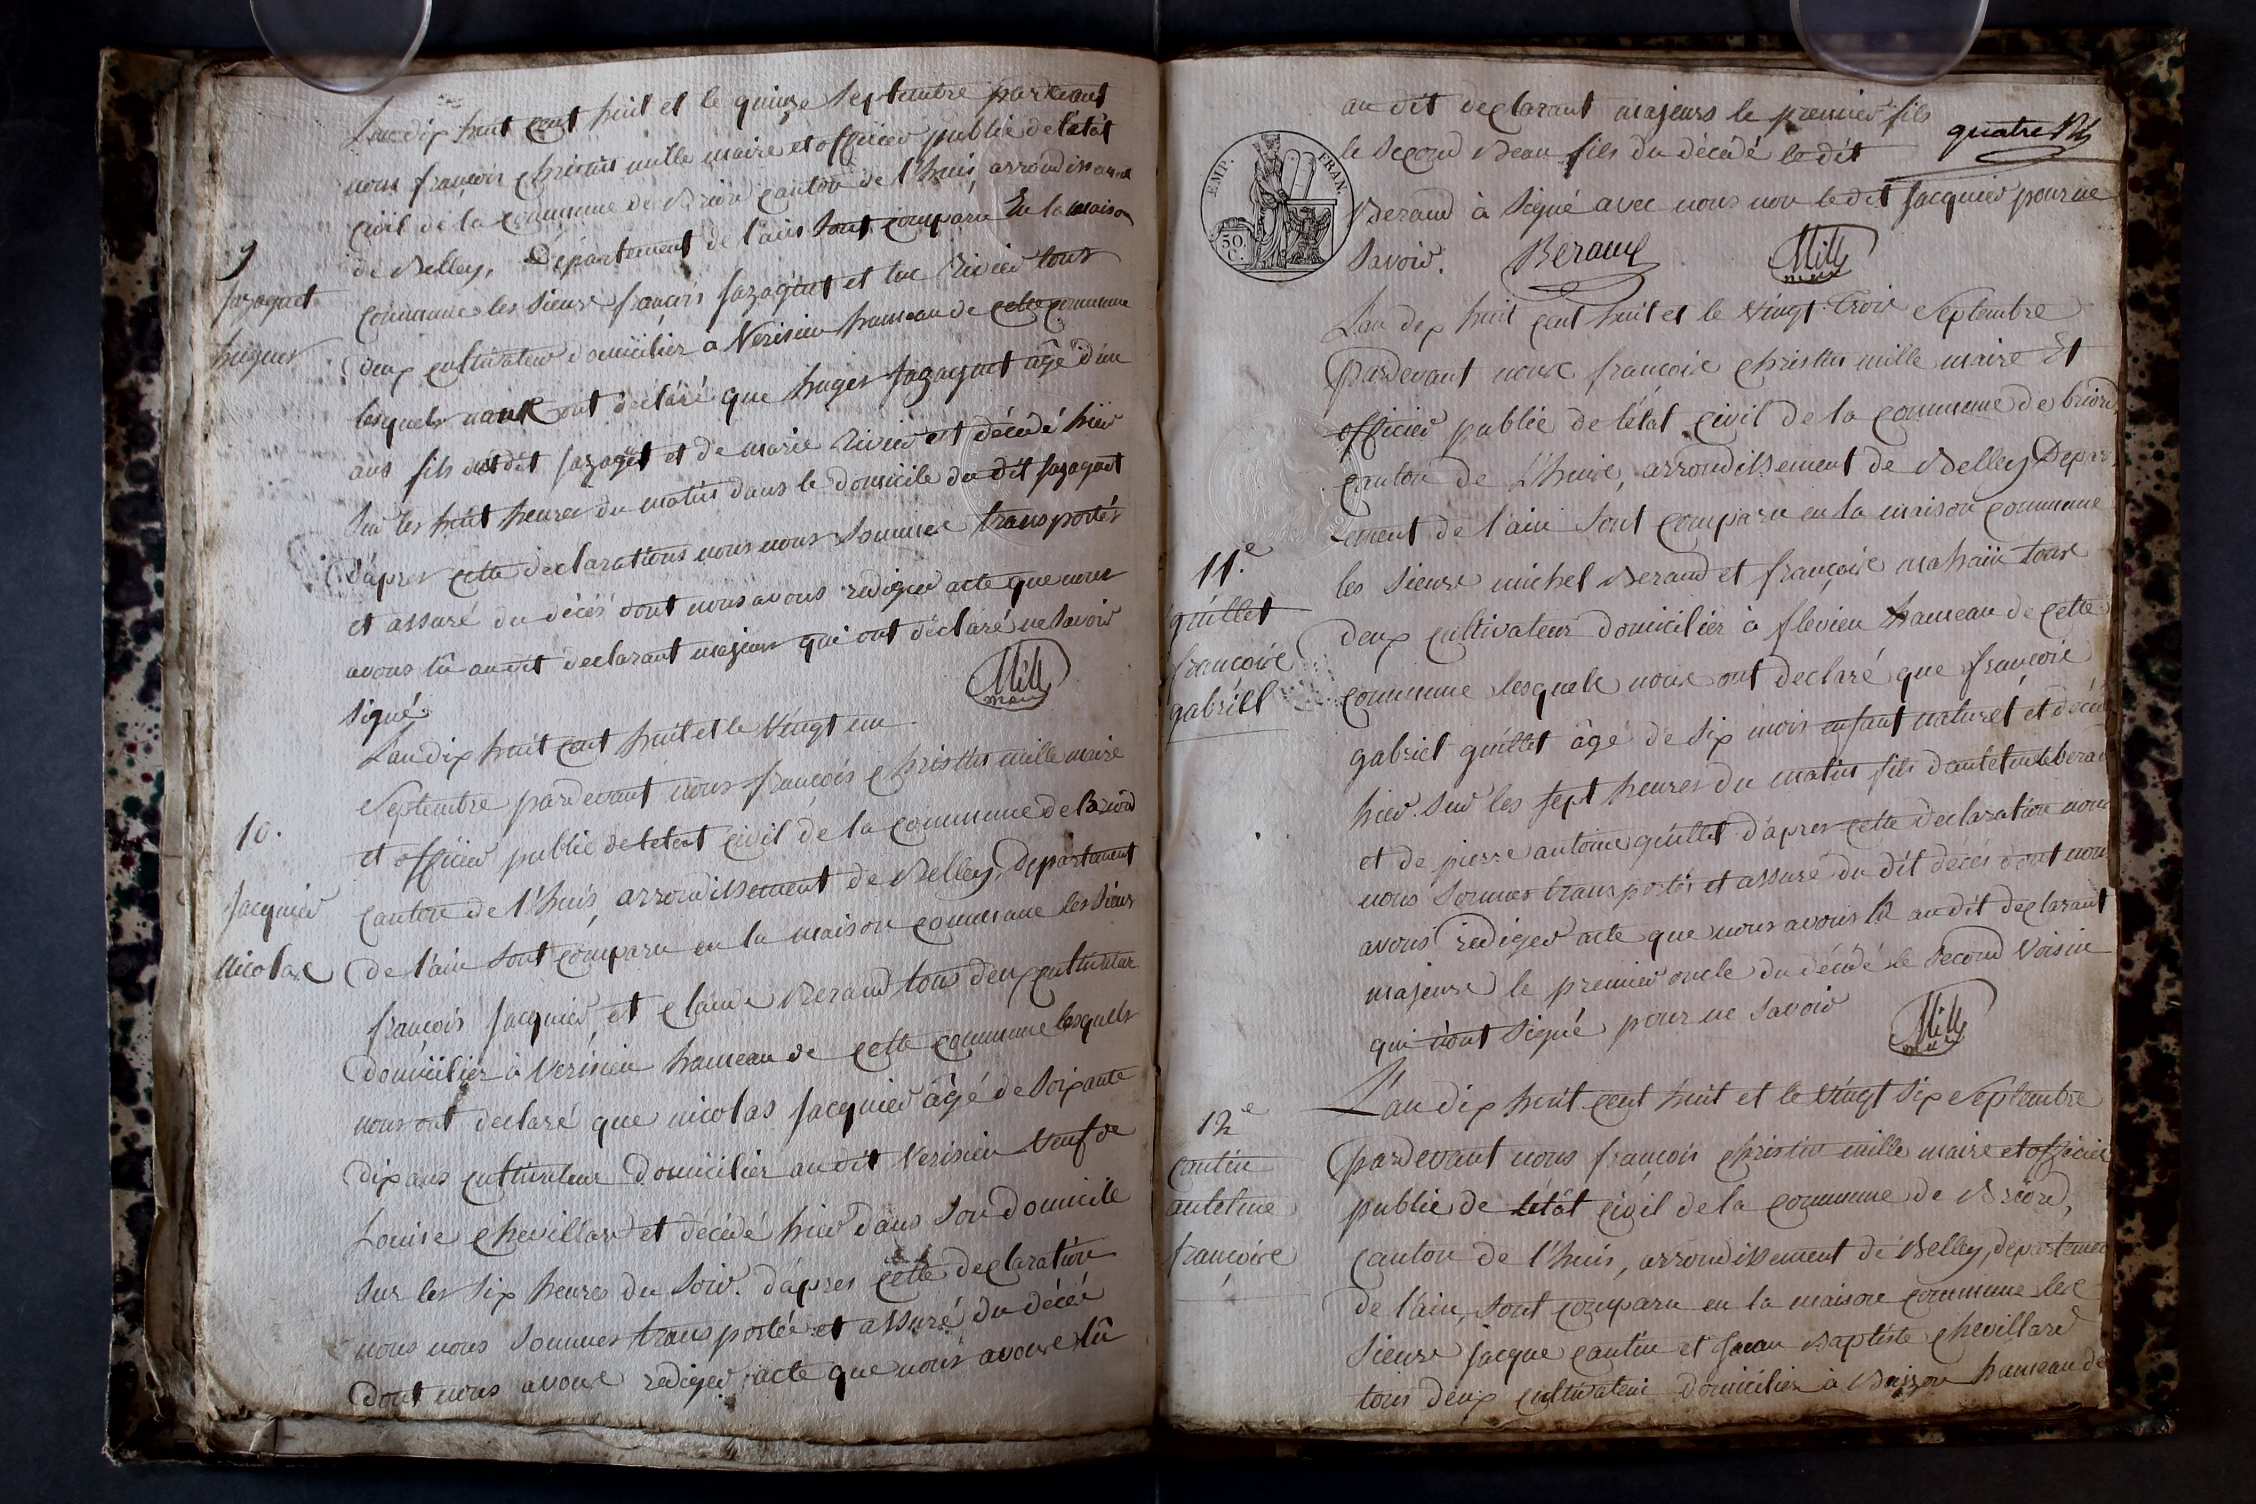 Lan dix huit cent huit et le quinze Septembre pardevant
nous françois christin mille maire et officier public de letat
civil de la commune de Briord canton de l'huis, arrondissement
de Belley, Département de l'ain sont comparu En la maison
9
jazaguet
hugues
commune les sieurs françois jazaguet et luc Rivier tous
deux cultivateur domicilier à Verisieu hameau de cette commune
lesquels nous ont déclaré que huges jazaguet âgé d'un
ans fils dudit jazaguet et de marie Rivier est décédé hier
sur les huit heures du matin dans le domicile du dit jazaguet
d'apres cette declarations nous nous sommes transportés
et assuré du décés dont nous avons rediger acte que nous
avons lû audit declarant majeurs qui ont déclaré ne savoir
signé.
Mille
maire
Lan dix huit cent huit et le vingt un
Septembre pardevant nous françois christin mille maire
et officier public de letat civil de la commune de Briord
10.
jacquier
nicolas
canton de l'huis, arrondissement de Belley, Departement
de l'ain sont comparu en la maison commune les sieurs
françois jacquier, et claude Beraud tous deux cultivateur
domicilier à Verisieu hameau de cette commune lesquels
nous ont declaré que nicolas jacquier âgé de soixante
dix ans cultivateur domicilier audit Verisieu veuf de
Louise chevillard et décédé hier dans son domicile
sur les six heures du soir. d'apres cette declaration
nous nous sommes transportés et assuré du décés
dont nous avons rediger acte que nous avons lû
au dit declarant majeurs le premier fils
quatre
le second Beau fils du décédé le dit
EMP. FRAN.
50. C.
Beraud à signé avec nous non le dit jacquier pour ne
savoir.
Beraud
Mille
maire
Lan dix huit cent huit et le vingt trois Septembre
Pardevant nous françois christin mille maire Et
officier public de létat civil de la commune de briord,
canton de L'huis, arrondissement de Belley Depar-
-ement de l'ain sont comparu en la maison commune
11.e
guillet
francoise
gabriel
les sieurs michel Beraud et françois mahaïn tous
deux cultivateur domicilier à flévieu hameau de cette
commune lesquels nous ont declaré que françois
gabriel guillet âgé de six mois enfant naturel et décédé
hier sur les sept heures du matin fils dantelme beraud
et de pierre antoine guillet d'apres cette déclaration nous
nous sommes transportés et assuré du dit décés dont nous
avons rediger acte que nous avons lû audit declarant
majeurs le premier oncle du décédé le second voisin
qui n'ont signé pour ne savoir
Mille
maire
L'an dix huit cent huit et le vingt six Septembre
12e
cantin
antelme
francoise
pardevant nous françois christin mille maire et officier
public de létât civil de la commune de Briord,
canton de l'huis, arrondissement de Belley, departement
de l'ain, sont comparu en la maison commune les
sieurs jacque cantin et Jean Baptiste chevillard
tous deux cultivateur domicilier à Buisson hameau de